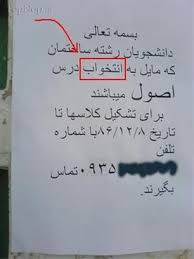 بسمه تعالی
دانشجویان رشته ساختمان
که مایل به انتخواب درس
اصول میباشند
برای تشکیل کلاسها تا
تاریخ ۸۶/۱۲/۸ با شماره
تلفن
۰۹۳۵ تماس
بگیرند.